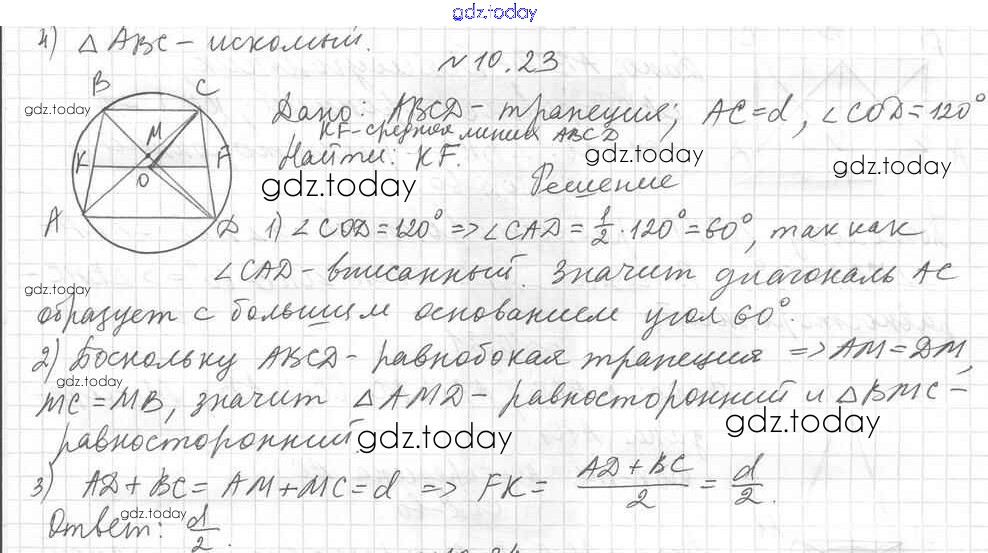 gdz.today
4) △ ABC – искомый.
№ 10.23
B C
gdz.today
Дано: ABCD – трапеция; AC = d, ∠COD = 120°
KF – средняя линия ABCD
M
Найти: KF. gdz.today gdz.today
K F
O
gdz.today Решение
A D 1) ∠COD = 120° => ∠CAD = 1/2 · 120° = 60°, так как
∠CAD – вписанный. Значит диагональ AC
gdz.today
образует с большим основанием угол 60°.
2) Поскольку ABCD – равнобокая трапеция => AM = DM,
gdz.today
MC = MB, значит △AMD – равносторонний и △BMC –
равносторонний. gdz.today gdz.today
3) AD + BC = AM + MC = d => FK = (AD + BC)/2 = d/2.
Ответ: d/2.
gdz.today